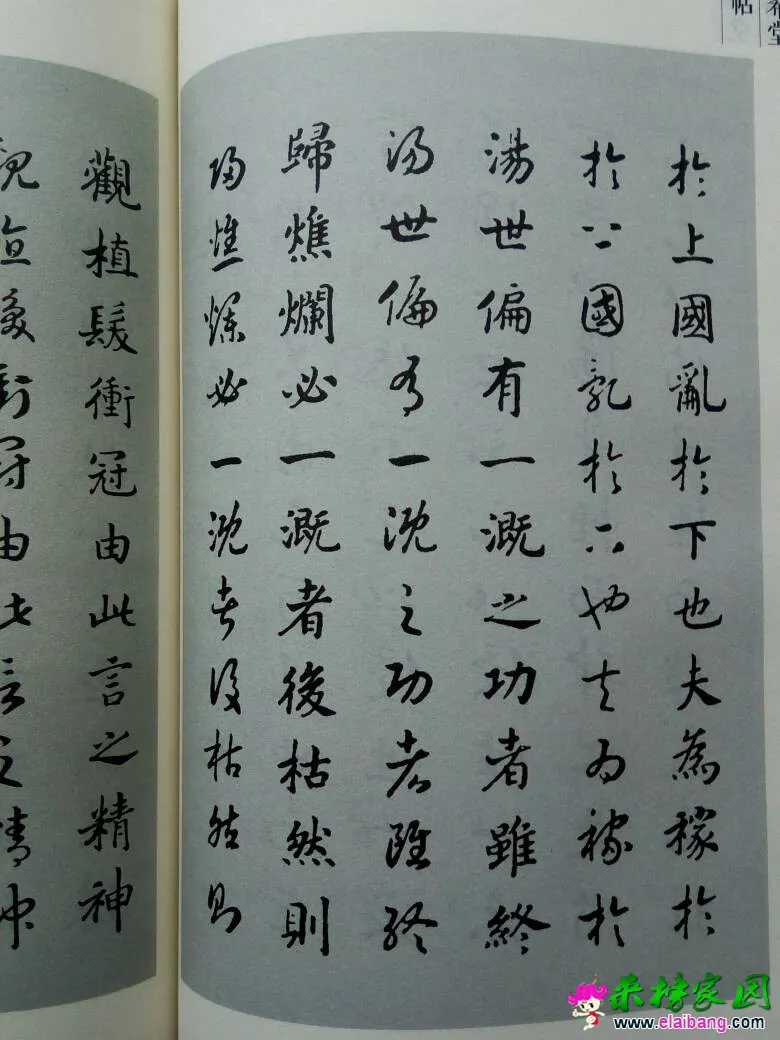 希堂
帖
於上國亂於下也夫為稼於
於上國亂於下也夫為稼於
湯世偏有一溉之功者雖終
湯世偏有一溉之功者雖終
歸燋爛必一溉者後枯然則
歸燋爛必一溉者後枯然則
觀植髮衝冠由此言之精神
觀植髮衝冠由此言之精神
来榜家园
www.elaibang.com